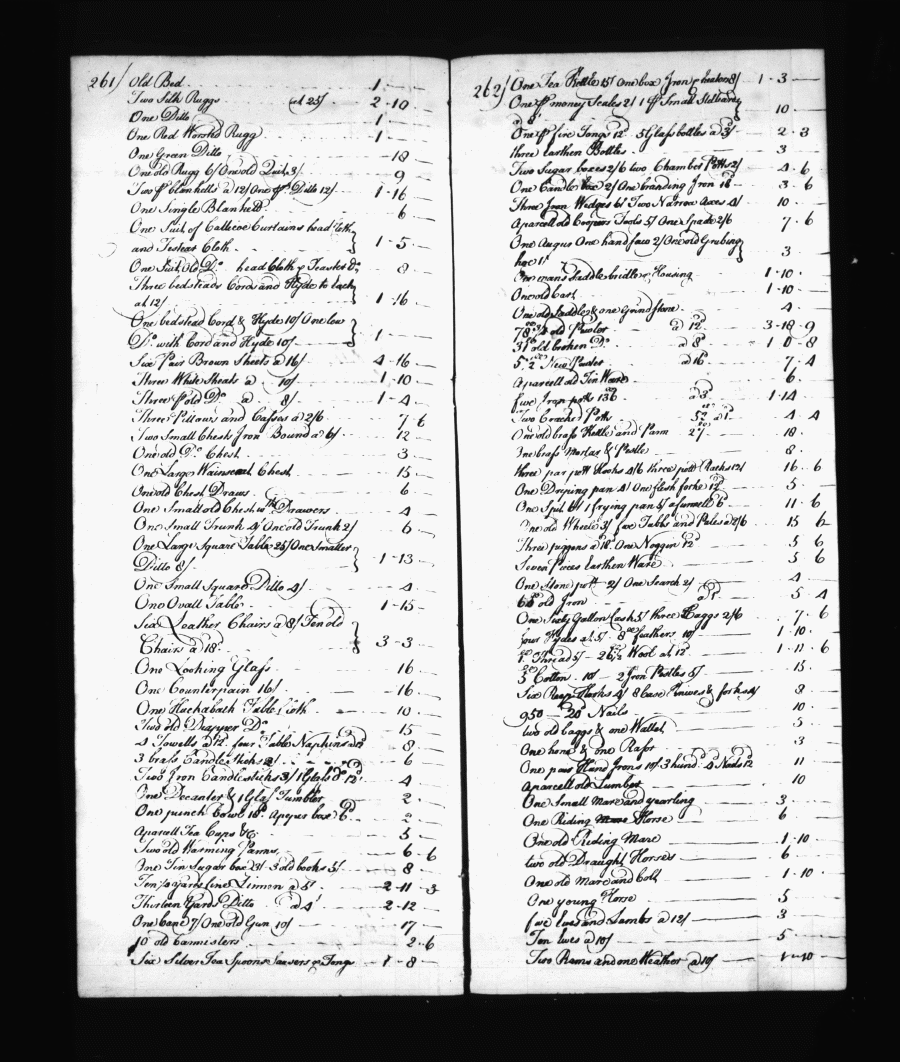 261/ Old Bed 1 -
Two Silk Ruggs at 25/ 2 - 10
One Ditto 1 -
One Red Worsted Rugg 1 -
One Green Ditto 18 -
One old Rugg 6/ One old Quilt 3/ 9
Two pr blanketts a 12/ One pr Ditto 12/ 1 - 16
One Single Blankett 6
One Suit of Callicoe Curtains head Cloth
and Testear Cloth 1 - 5 -
One Suit Old Do head Cloth & Teaster Do 8
Three bedsteads Cord and Hyde to Each
at 12/ 1 - 16 -
One bedstead Cord & Hyde 10/ One low
Do with Cord and Hyde 10/ 1 -
Six Pair Brown Sheets a 16/ 4 - 16
Three White Sheets a 10/ 1 - 10
Three old Do a 8/ 1 - 4
Three Pillows and Casses a 2/6 7 - 6
Two Small Chests Iron Bound a 6/ 12
One old Do Chest 3
One Large Wainscoat Chest 15
One old Chest Draws 6
One Small old Chest wth Drawers 4
One Small Trunk 4/ One old Trunk 2/ 6
One Large Square Table 25/ One Smaller
Ditto 8/ 1 - 13 -
One Small Square Ditto 4/ 4
One Ovall Table 1 - 15
Six Leather Chairs a 8/ Ten old
Chairs a 18d 3 - 3
One Looking Glass 16
One Counterpain 16/ 16
One Huckaback Table Cloth 10
Two old Diapper Do 15
4 Towells a 12d four Table Napkins 8
3 brass Candlesticks 6
Two Iron Candlesticks 3/ 1 Glass Do 12d 4
One Decanter & 1 Glass Tumbler 2
One punch bowl 18d a pepper box 6d 2
Aparcell Tea Cups &c 5
Two old Warming Panns 6 - 6
One Tin Sugar box 3/ 3 old books 5/ 8
Ten 1/4 yards fine Linnon a 5/ 2 - 11 - 3
Thirteen Yards Ditto a 4/ 2 - 12
One Cane 7/ One old Gun 10/ 17
10 old Cannisters 2 - 6
Six Silver Tea Spoons & Tongs 1 - 8 -
262/ One Tea Kettle 15/ One box Iron & heaters 8/ 1 - 3
One pr money Scales 2/ 1 pr Small Stilliards
a 8/ 10
One pr fire Tongs 12d 5 Glass bottles a 3d 2 - 3
three Earthen Bottles 3
Two Sugar boxes 2/6 two Chamber Potts 2/ 4 - 6
One Candle box 2/ One branding Iron 18d 3 - 6
Three Iron Wedges 6/ Two Narrow Axes 4/ 10
Aparcell Coopers Tools 5/ One Spade 2/6 7 - 6
One Augur One hand saw 2/ One old Grubing
hoe 1/ 3
One mans Saddle bridle & Housing 1 - 10
One old Cart 1 - 10
One old Saddle & one Grindstone 4
78 3/4 old Pewter a 12d 3 - 18 - 9
31 old broken Do a 8d 1 - 0 - 8
5 1/2 New Pewter a 16d 7 - 4
Aparcell old Tin Ware 6
five Iron potts 136 a 3d 1 - 14
Two Cracked Potts 52 a 1d 4 - 4
One old brass Kettle and Pann 27 18
One brass Mortar & Pestle 8
three pair pott Hooks 4/6 three pott Racks 12/ 16 - 6
One Driping pan 4/ One flesh forke 12d 5
One Spit 6/ 1 frying pan 5/ a funnell 6d 11 - 6
One old Wheele 3/ five Tubbs and Pales a 2/6 15 6
Three piggens a 18d One Noggin 12d 5 6
Seven Pieces Earthen Ware 5 6
One Stone pott 2/ One Search 2/ 4
old Iron a 1d 5 4
One Sixty Gallon Cask 5/ three Caggs 2/6 7 - 6
four Hydes at 5/ 8 feathers 10/ 1 - 10
1 Thread 5/ 26 1/2 Wool at 12d 1 - 11 - 6
5 Cotton 10/ 2 Iron Pestles 5/ 15
Six Reap Hooks 4/ 8 Case Knives & forks 4/ 8
950 20d Nails 10
two old baggs & one Wallet 5
One hone & one Razor 3
One pair Hand Irons 10/ 3 hund 4d Nails 12d 11
Aparcell old Lumber 10
One Small Mare and yearling 3
One Riding Horse 6
One old Riding Mare 1 - 10
two old Draught Horses 6
One old Mare and Colt 1 - 10
One young Horse 5
five Ewes and Lambs a 12/ 3
Ten Ewes a 10/ 5
Two Rams and one Weather a 10/ 1 - 10